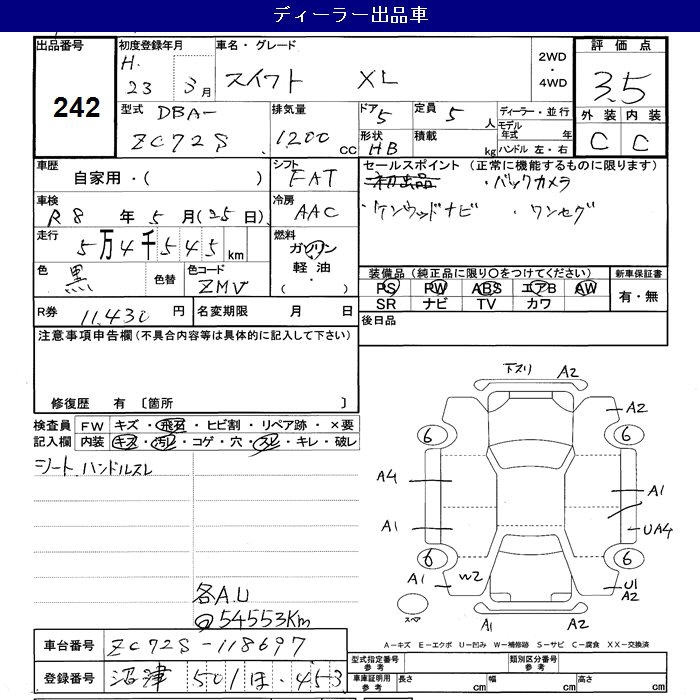 ディーラー出品車
出品番号 初度登録年月 車名・グレード 2WD・4WD 評価点
242 H.23 3月 スイフト XL 3.5
型式 DBA- ZC72S 排気量 1200cc ドア 5 定員 5人 ディーラー・並行 外装 内装
形状 HB 積載 kg モデル年式 年 ハンドル 左・右 C C
車歴 自家用・( ) シフト FAT セールスポイント (正常に機能するものに限ります)
初出品 ・バックカメラ
車検 R8年5月(25日) 冷房 AAC ・ケンウッドナビ ・ワンセグ
走行 5万4千545km 燃料 ガソリン 軽油 ・( )
色 黒 色替 色コード ZMV
装備品 (純正品に限り○をつけてください) 新車保証書
PS PW ABS エアB AW 有・無
SR ナビ TV カワ
R券 11,430円 名変期限 月 日 後日品
注意事項申告欄(不具合内容等は具体的に記入して下さい)
修復歴 有 〔箇所 〕
検査員 FW キズ・飛石・ヒビ割・リペア跡・×要
記入欄 内装 キズ・汚レ・コゲ・穴・スレ・キレ・破レ
シート、ハンドルスレ
下スリ A2
A2
6 6
A4 A1
A1 UA4
6 6
A1 W2 U1
A2
スペア
A1 A2
各A.U
54553Km
A-キズ E-エクボ U-凹み W-補修跡 S-サビ C-腐食 XX-交換済
車台番号 ZC72S-118697
登録番号 沼津 501 ほ 453
型式指定番号 参考 類別区分番号 参考
車庫証明用 参考 長さ cm 幅 cm 高さ cm